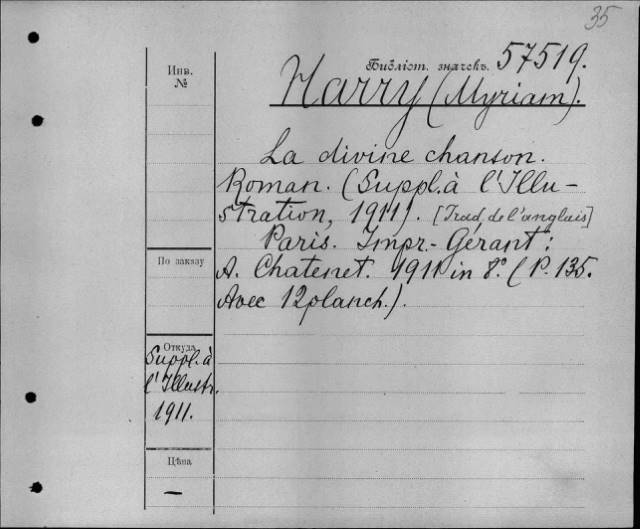 35
Инв.
№
Библіот. значекъ. 57519.
Harry (Myriam).
La divine chanson.
Roman. (Suppl. à l'Illu-
stration, 1911). [Trad. de l'anglais]
Paris. Impr.-Gérant:
A. Chatenet. 1911 in 8º. (P. 135.
Avec 12 planch.).
По заказу
Откуда
Suppl. à
l'Illustr.
1911.
Цѣна
—